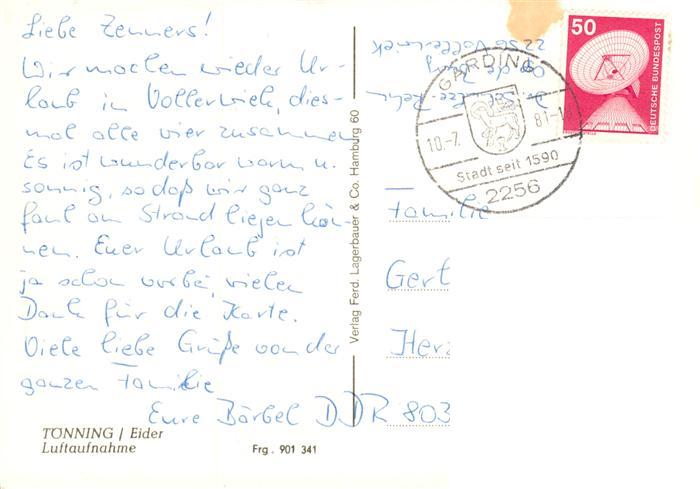 Liebe Zenners!
Wir machen wieder Ur-
laub in Vollerwiek, dies-
mal alle vier zusammen
Es ist wunderbar warm u.
sonnig, so daß wir ganz
faul am Strand liegen kön-
nen. Euer Urlaub ist
ja schon vorbei, vielen
Dank für die Karte.
Viele liebe Grüße von der
ganzen Familie
Eure Bärbel
TÖNNING / Eider
Luftaufnahme
Frg. 901 341
Verlag Ferd. Lagerbauer & Co. Hamburg 60
2256 Vollerwiek
50
DEUTSCHE BUNDESPOST
GARDING
10.-7. 81-1
Stadt seit 1590
2256
Familie
Gert
Her
DDR 803